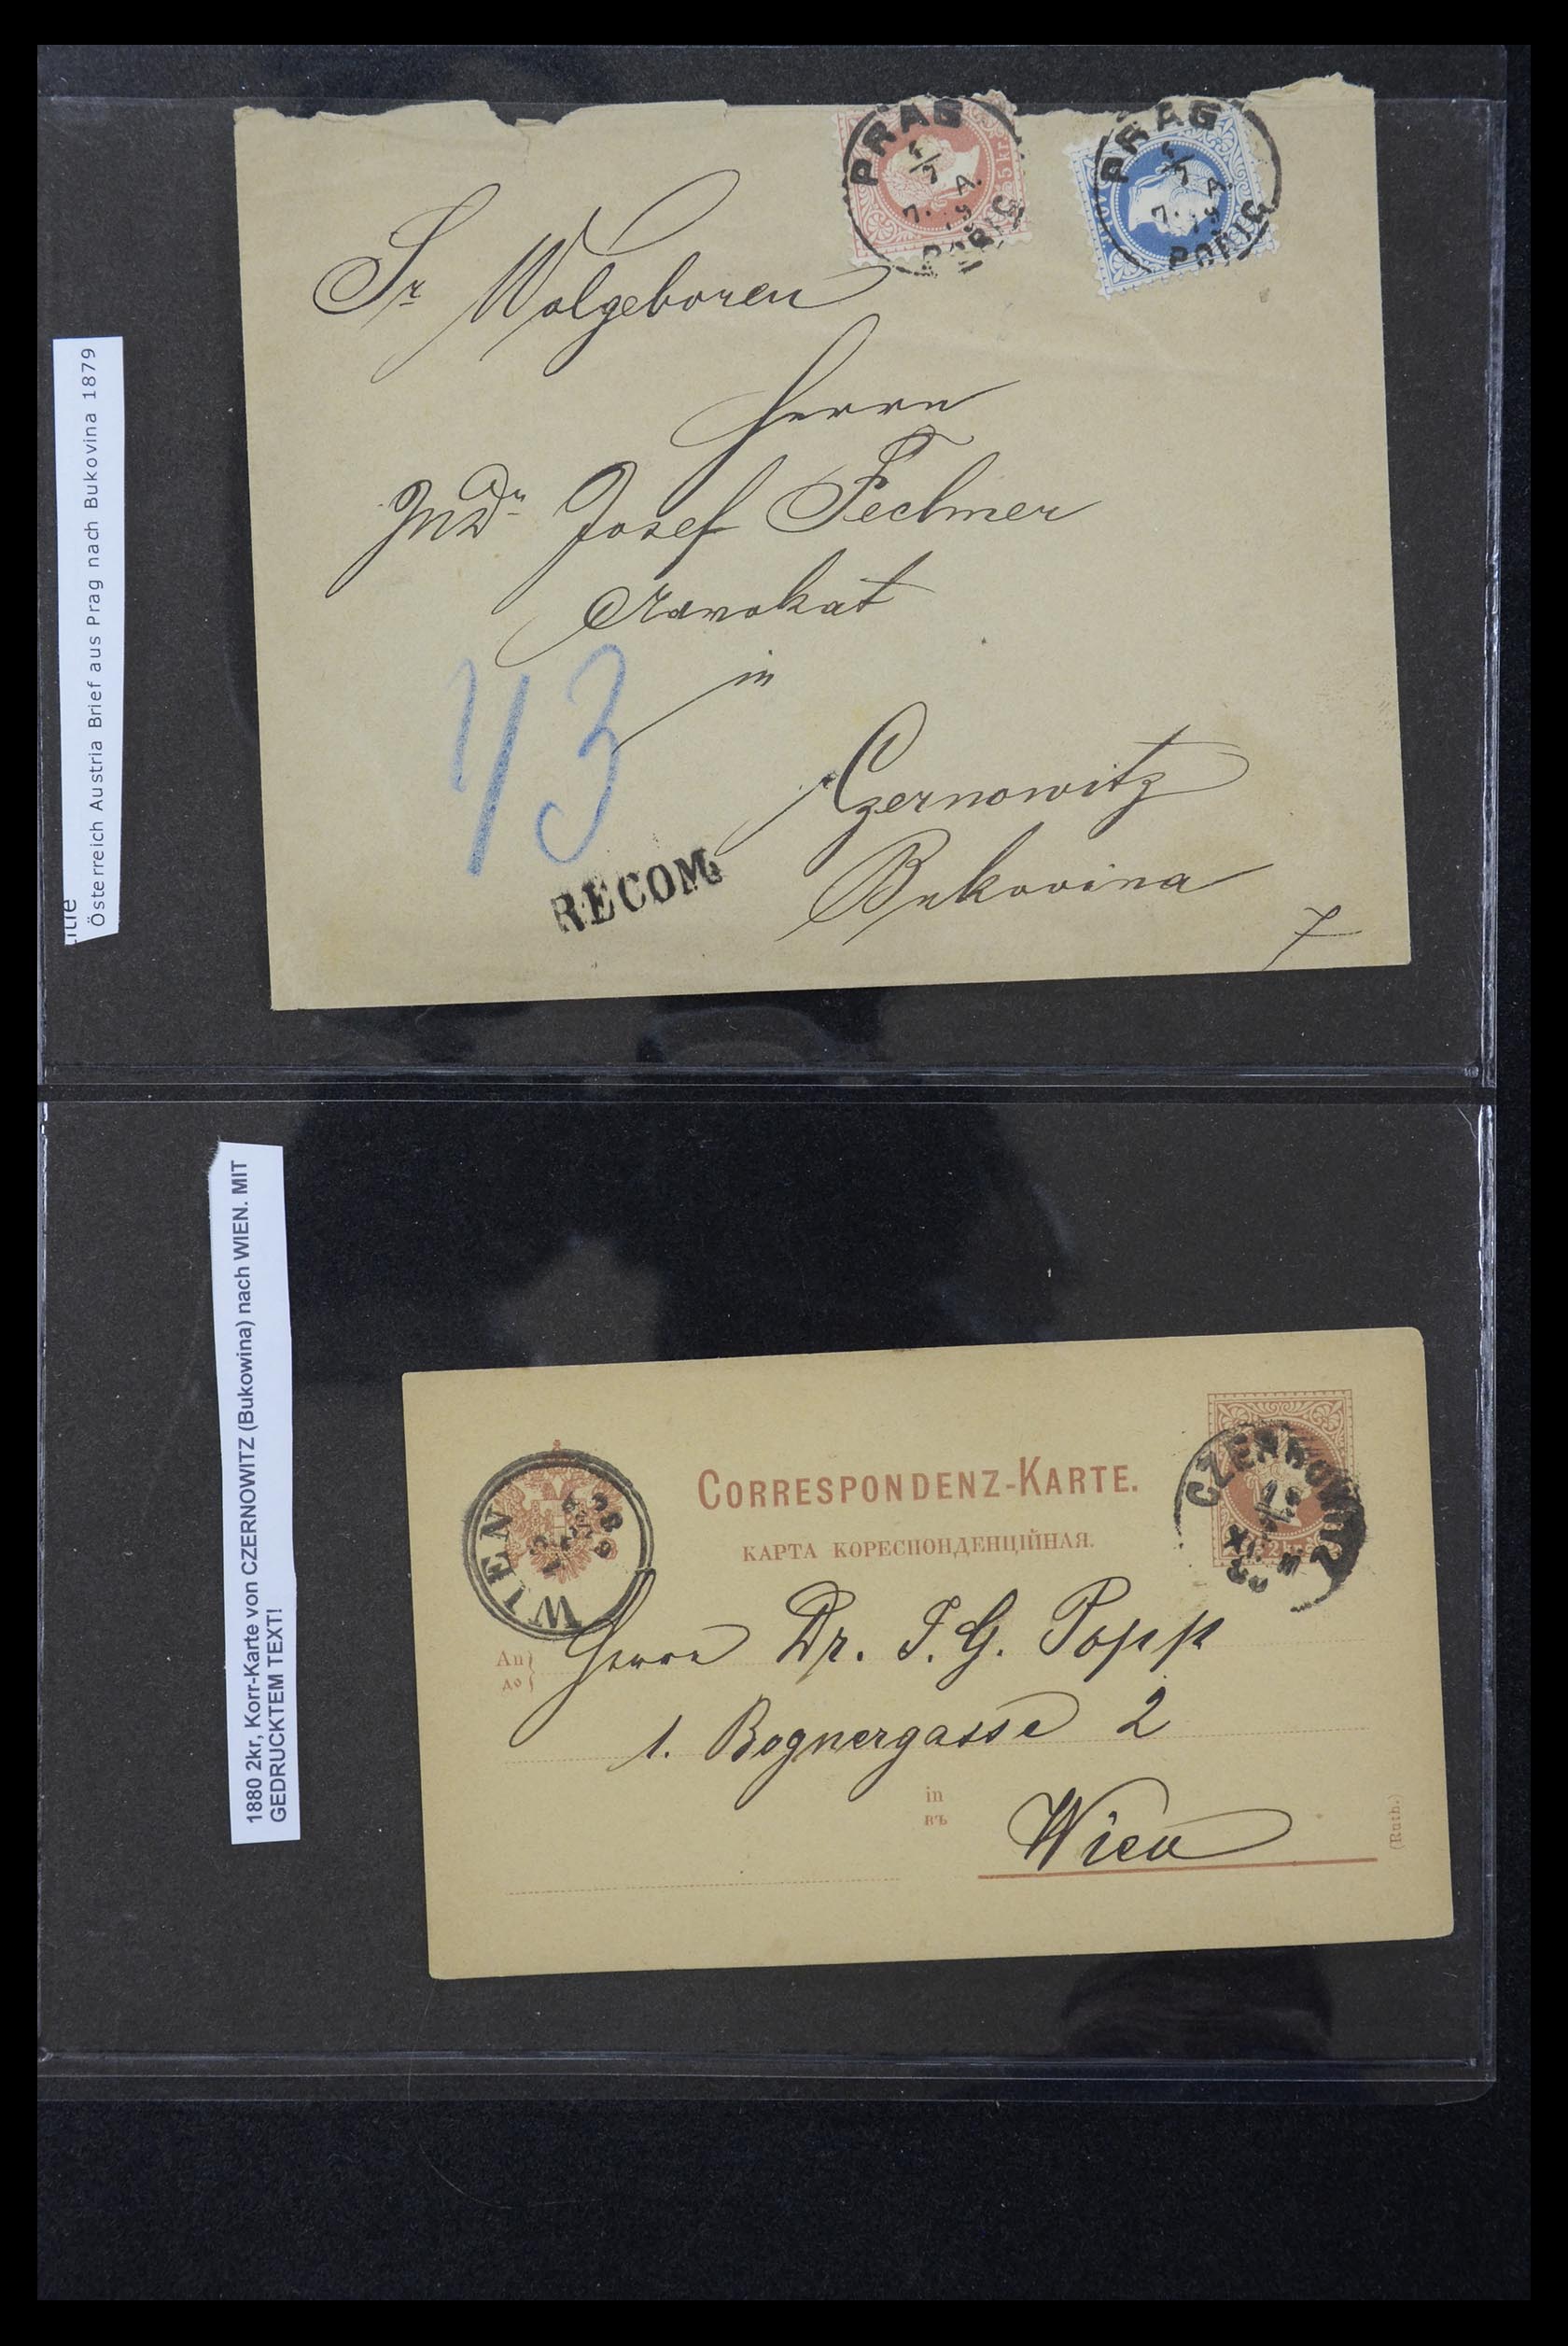 Österreich Austria Brief aus Prag nach Bukovina 1879
PRAG
7. A.
PORIC
5 kr
PRAG
7. A.
79
PORIC
Sr Wolgeboren
Herrn
Josef Fechner
Advokat
in
Czernowitz
Bukovina
RECOM.
7
1880 2kr, Korr-Karte von CZERNOWITZ (Bukowina) nach WIEN. MIT
GEDRUCKTEM TEXT!
WIEN
CORRESPONDENZ-KARTE.
КАРТА КОРЕСПОНДЕНЦІЙНАЯ.
CZERNOWITZ
An
до
Herrn Dr. J. G. Popp
1. Bognergasse 2
in
въ
Wien
(Ruth.)